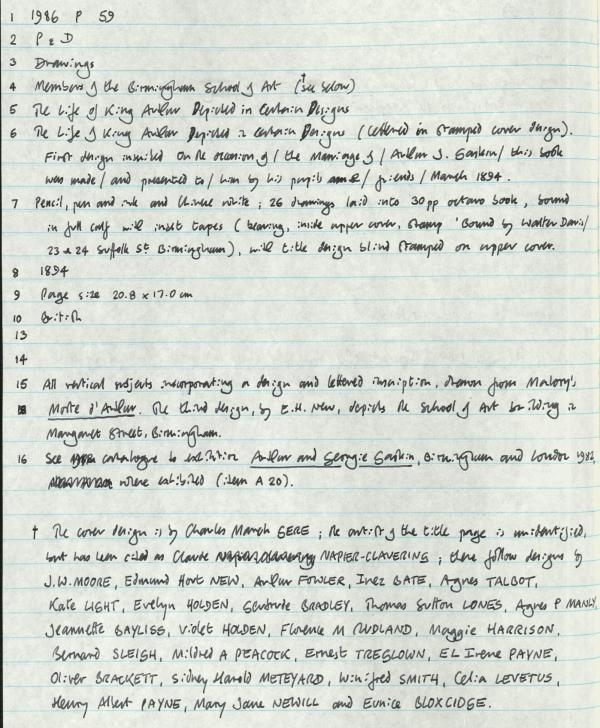 1 1986 P 59
2 P & D
3 Drawings
4 Members of the Birmingham School of Art († see below)
5 The Life of King Arthur Depicted in Certain Designs
6 The Life of King Arthur Depicted in Certain Designs (lettered in stamped cover design).
First design inscribed On the occasion of / the Marriage of / Arthur J. Gaskin / this book
was made / and presented to / him by his pupils and / friends / March 1894.
7 Pencil, pen and ink and Chinese white; 26 drawings laid into 30 pp octavo book, bound
in full calf with inset tapes (bearing, inside upper cover, stamp 'Bound by Walter Davis /
23 & 24 Suffolk St Birmingham), with title design blind stamped on upper cover.
8 1894
9 Page size 20.8 x 17.0 cm
10 British
13
14
15 All vertical subjects incorporating a design and lettered inscription, drawn from Malory's
Morte d'Arthur. The third design, by E.H. New, depicts the School of Art building in
Margaret Street, Birmingham.
16 See catalogue to exhibition Arthur and Georgie Gaskin, Birmingham and London 1982,
where exhibited (item A 20).
† The cover design is by Charles March GERE; the artist of the title page is unidentified,
but has been cited as Claude NAPIER-CLAVERING; there follow designs by
J.W. MOORE, Edmund Hort NEW, Arthur FOWLER, Inez BATE, Agnes TALBOT,
Kate LIGHT, Evelyn HOLDEN, Gertrude BRADLEY, Thomas Sutton LONES, Agnes P MANLY,
Jeannette BAYLISS, Violet HOLDEN, Florence M RUDLAND, Maggie HARRISON,
Bernard SLEIGH, Mildred A PEACOCK, Ernest TREGLOWN, EL Irene PAYNE,
Oliver BRACKETT, Sidney Harold METEYARD, Winifred SMITH, Celia LEVETUS,
Henry Albert PAYNE, Mary Jane NEWILL and Eunice BLOXCIDGE.